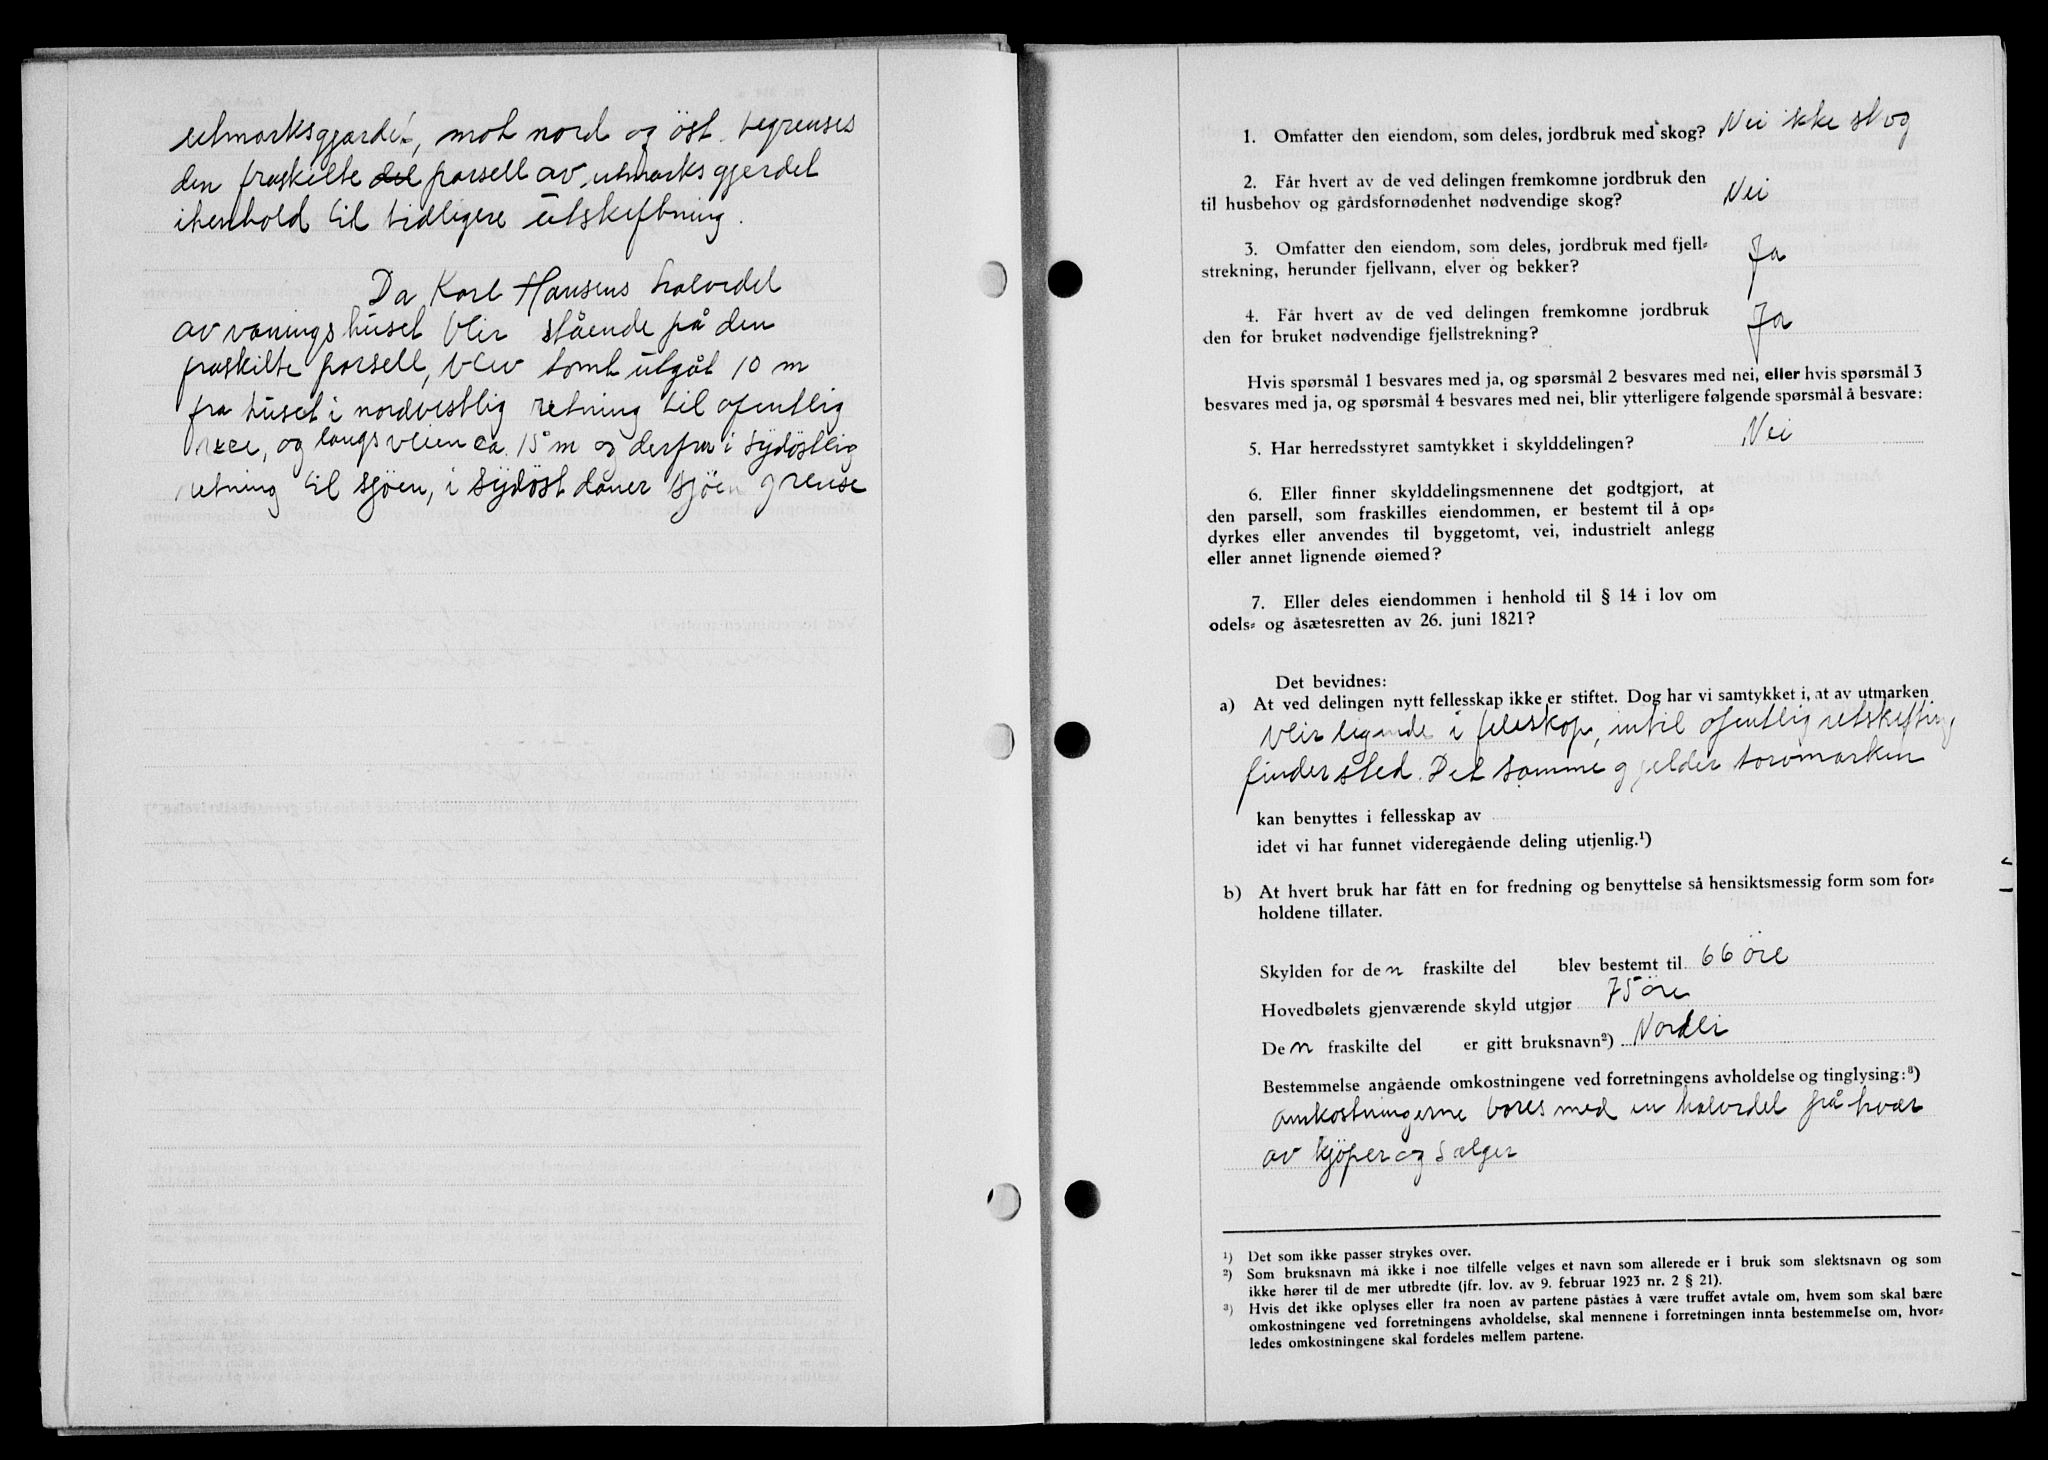 utmarksgjærdet, mot nord og öst begrenses
den fraskilte del parsell av utmarksgjerdet
ihenhold til tidligere utskiftning.
Da Karl Hansens halvdel
av vaningshuset blir stående på den
fraskilte parsell, blev tomt utgåt 10 m
fra huset i nordvestlig retning til ofentlig
veie, og langs veien ca. 15 m og derfra i sydöstlig
retning til sjöen, i sydöst daner sjöen grense
1. Omfatter den eiendom, som deles, jordbruk med skog? Nei ikke skog
2. Får hvert av de ved delingen fremkomne jordbruk den
til husbehov og gårdsfornødenhet nødvendige skog? Nei
3. Omfatter den eiendom, som deles, jordbruk med fjell-
strekning, herunder fjellvann, elver og bekker? Ja
4. Får hvert av de ved delingen fremkomne jordbruk
den for bruket nødvendige fjellstrekning? Ja
Hvis spørsmål 1 besvares med ja, og spørsmål 2 besvares med nei, eller hvis spørsmål 3
besvares med ja, og spørsmål 4 besvares med nei, blir ytterligere følgende spørsmål å besvare:
5. Har herredsstyret samtykket i skylddelingen? Nei
6. Eller finner skylddelingsmennene det godtgjort, at
den parsell, som fraskilles eiendommen, er bestemt til å op-
dyrkes eller anvendes til byggetomt, vei, industrielt anlegg
eller annet lignende øiemed?
7. Eller deles eiendommen i henhold til § 14 i lov om
odels- og åsætesretten av 26. juni 1821?
Det bevidnes:
a) At ved delingen nytt fellesskap ikke er stiftet. Dog har vi samtykket i, at av utmarken
blir ligende i feleskap, intil ofentlig utskifting
finder sted. Det samme gjelder torvmarken
kan benyttes i fellesskap av
idet vi har funnet videregående deling utjenlig.¹)
b) At hvert bruk har fått en for fredning og benyttelse så hensiktsmessig form som for-
holdene tillater.
Skylden for den fraskilte del blev bestemt til 66 öre
Hovedbølets gjenværende skyld utgjør 75 öre
Den fraskilte del er gitt bruksnavn²) Nordli
Bestemmelse angående omkostningene ved forretningens avholdelse og tinglysing:³)
omkostningerne bæres med en halvdel på hver
av kjöper og sælger
¹) Det som ikke passer strykes over.
²) Som bruksnavn må ikke i noe tilfelle velges et navn som allerede er i bruk som slektsnavn og som
ikke hører til de mer utbredte (jfr. lov. av 9. februar 1923 nr. 2 § 21).
³) Hvis det ikke oplyses eller fra noen av partene påståes å være truffet avtale om, hvem som skal bære
omkostningene ved forretningens avholdelse, skal mennene i forretningen innta bestemmelse om, hvor-
ledes omkostningene skal fordeles mellem partene.